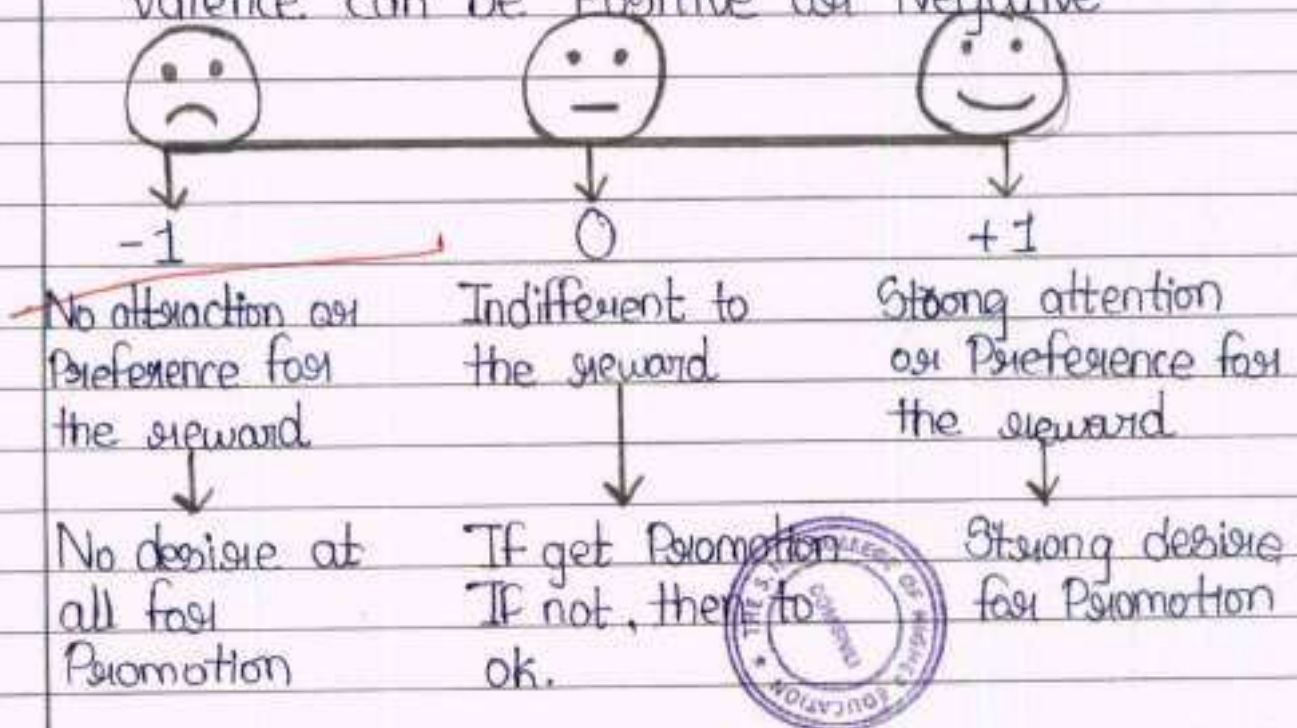 Valence can be Positive or Negative
-1
0
+1
No attraction or
Preference for
the reward
Indifferent to
the reward
Stoong attention
or Preference for
the reward
No desire at
all for
Promotion
If get Promotion
If not, then to
ok.
Strong desire
for Promotion
COLLEGE OF HIGHER EDUCATION ★ THE S.